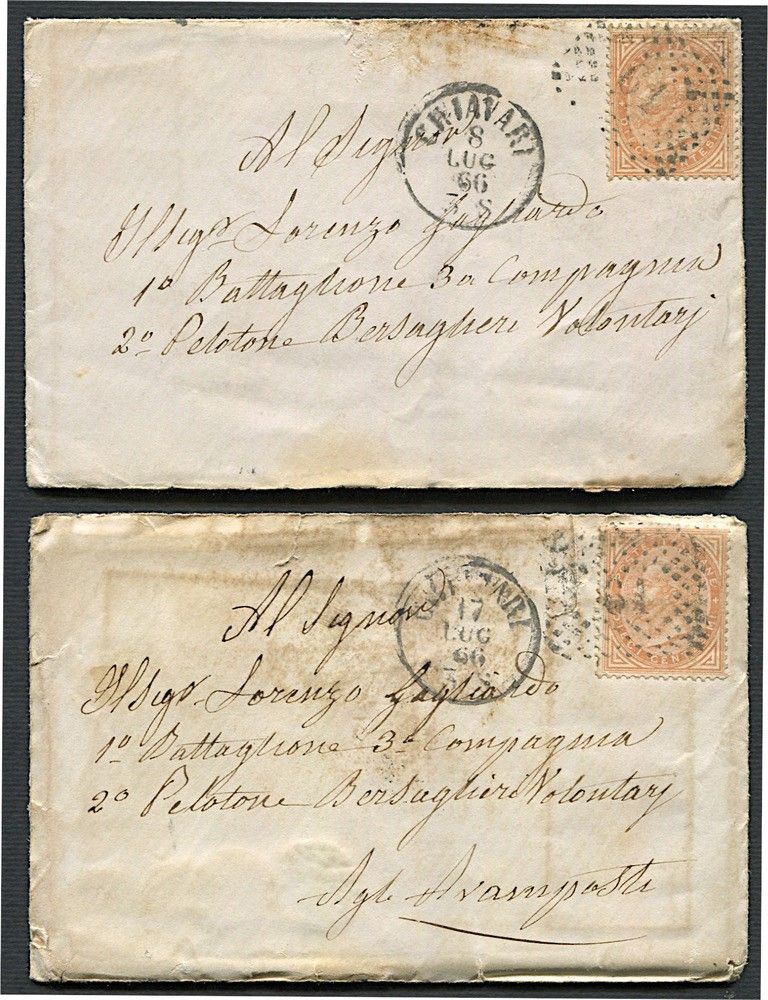 CHIAVARI
8
LUG
66
3 S
Al Signor
Il Sigr Lorenzo Gagliardo
1o Battaglione 3a Compagnia
2o Pelotone Bersaglieri Volontarj
CHIAVARI
17
LUG
66
3 S
51
Al Signor
Il Sigr Lorenzo Gagliardo
1o Battaglione 3a Compagnia
2o Pelotone Bersaglieri Volontarj
Agli Avamposti